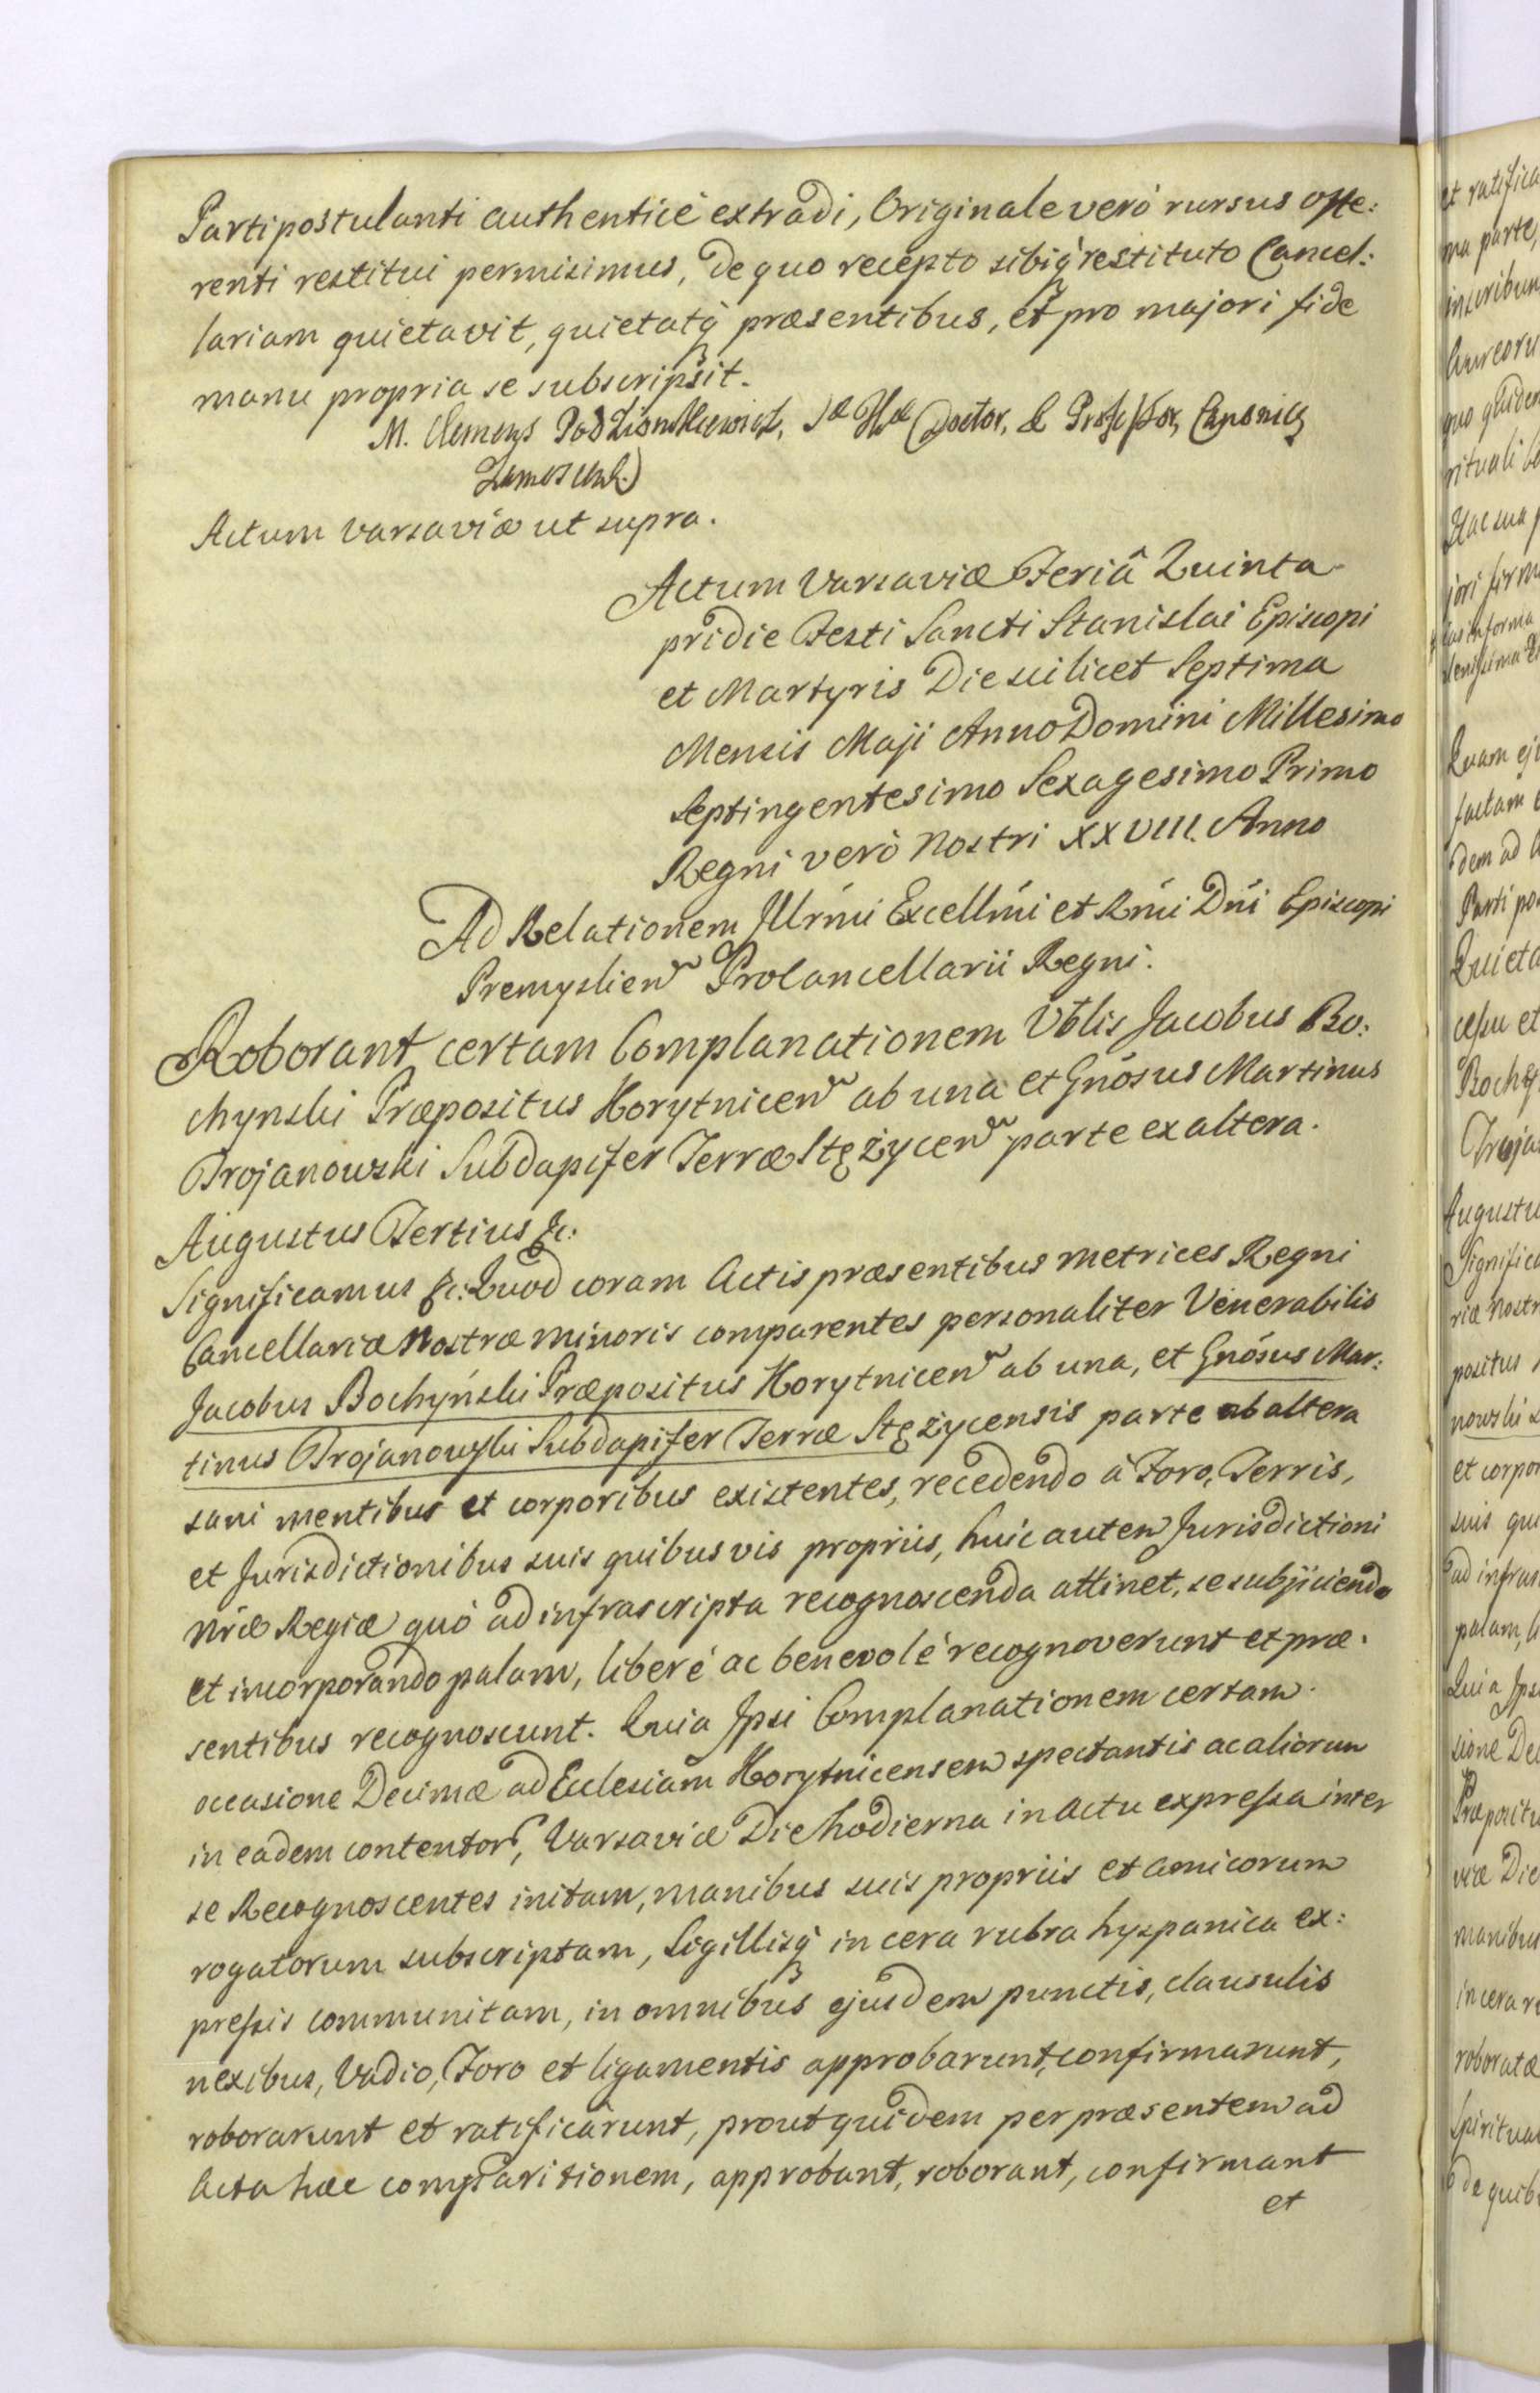 Parti postulanti authenticè extradi, Originale verò rursus offe:
renti restitui permisimus, de quo recepto sibiq̀ restituto Cancel:
lariam quietavit, quietatq̀ præsentibus, et pro majori fide
manu propria se subscripsit.
M. Clemens Doctor, & Professor, Canonicq
Zamoscen.)
Actum Varsaviæ ut supra.
Actum Varsaviæ Feriâ Quinta
pridie Festi Sancti Stanislai Episcopi
et Martyris Die scilicet Septima
Mensis Maji Anno Domini Millesimo
Septingentesimo Sexagesimo Primo
Regni verò Nostri XXVIII. Anno
Ad Relationem Illrmi Excellmi et Rmi Dni Episcopi
Premyslien Procancellarii Regni.
Roborant certam Complanationem Vblis Jacobus Bo:
chynski Præpositus Korytnicen ab una et Gnosus Martinus
Trojanowski Subdapifer Terræ Stężycen parte ex altera.
Augustus Tertius &c:
Significamus &c: Quod coram Actis præsentibus Metrices Regni
Cancellariæ Nostræ Minoris comparentes personaliter Venerabilis
Jacobus Bochyński Præpositus Korytnicen ab una, et Gnosus Mar:
tinus Trojanowski Subdapifer Terræ Stężycensis parte ab altera
sani mentibus et corporibus existentes, recedendo à Foro, Terris,
et Jurisdictionibus suis quibusvis propriis, huic autem Jurisdictioni
Nræ Regiæ quò ad infrascripta recognoscenda attinet, se subjiciendo
et incorporando palam, liberè ac benevolè recognoverunt et præ:
sentibus recognoscunt. Quia Ipsi Complanationem certam
occasione Decimæ ad Ecclesiam Korytnicensem spectantis ac aliorum
in eadem contentor, Varsaviæ Die hodierna in Actu expressa inter
se Recognoscentes initam, manibus suis propriis et amicorum
rogatorum subscriptam, Sigillisq̀ in cera rubra hyspanica ex:
pressis communitam, in omnibus ejusdem punctis, clausulis
nexibus, Vadio, Foro et ligamentis approbarunt, confirmarunt,
roborarunt et ratificârunt, prout quidem per præsentem ad
Acta hæc comparitionem, approbant, roborant, confirmant
et